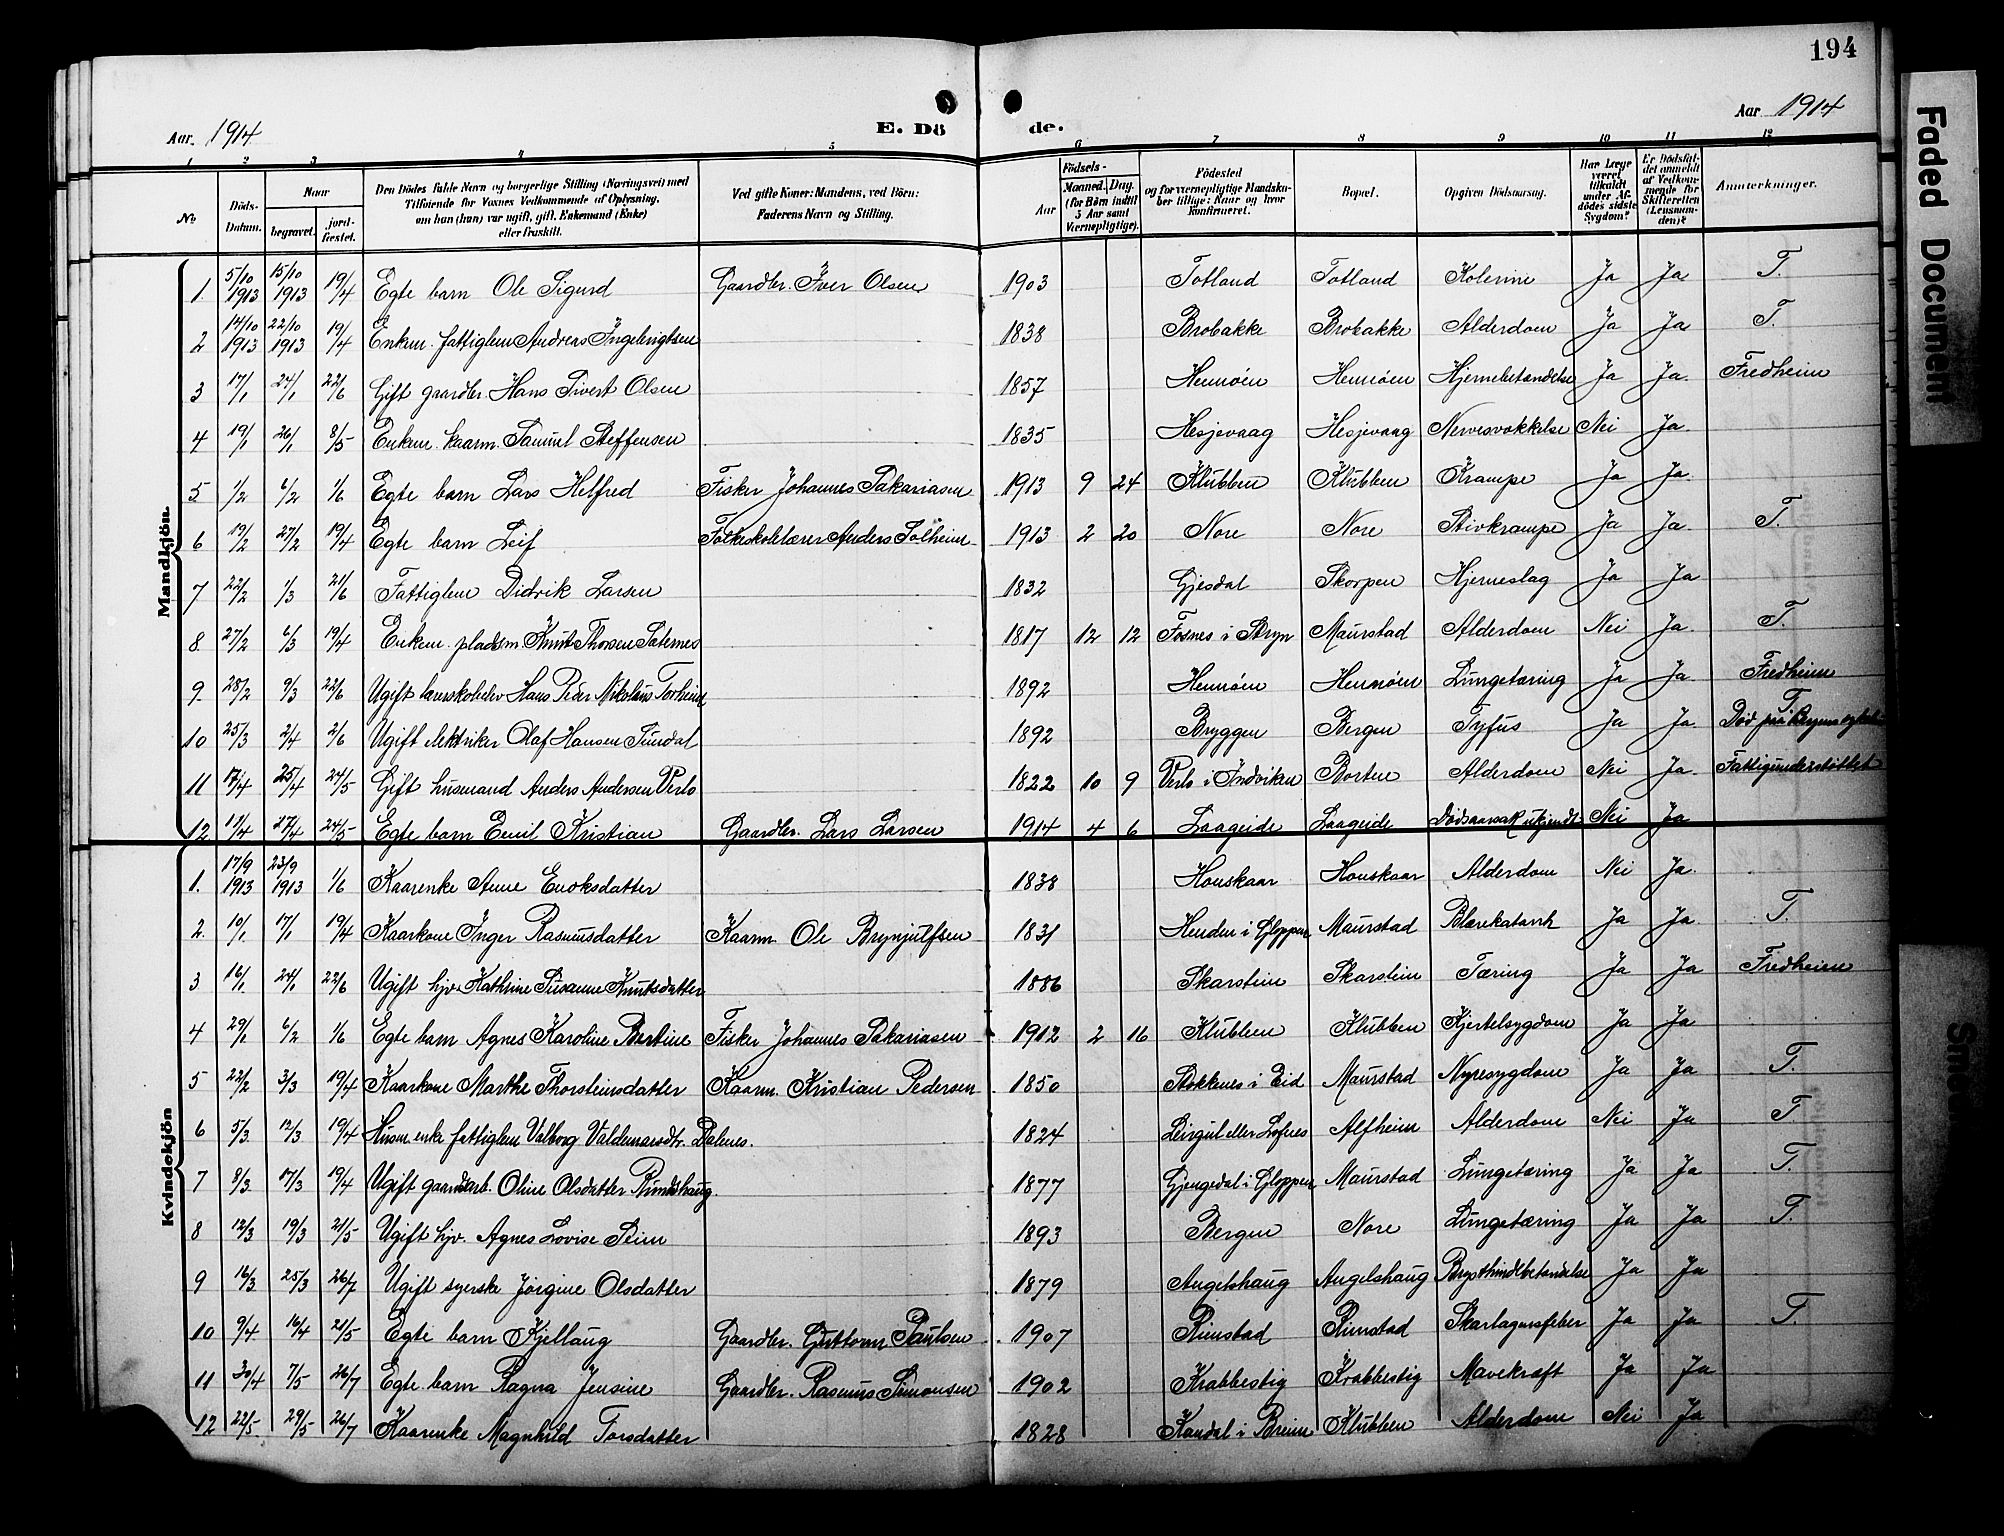 194
Aar. 1914 E. Dö de. Aar 1914
1 2 3 4 5 6 7 8 9 10 11 12
No. Döds-Datum. Naar begravet. jord-fæstet. Den Dödes fulde Navn og borgerlige Stilling (Næringsvei) med Tilföiende for Voxnes Vedkommende af Oplysning, om han (hun) var ugift, gift, Enkemand (Enke) eller fraskilt. Ved gifte Koner: Mandens, ved Börn: Faderens Navn og Stilling. Födsels- Aar Maaned. Dag. (for Börn indtil 5 Aar samt Værnepligtige). Födested og for værnepligtige Mandskaber tillige: Naar og hvor konfirmeret. Bopæl. Opgiven Dödsaarsag. Har Læge været tilkaldt under Afdödes sidste Sygdom? Er Dödsfaldet anmeldt af Vedkommende for Skifteretten (Lensmanden)? Anmærkninger.
Mandkjön.
1. 5/10 1913 15/10 1913 19/4 Egte barn Ole Sigurd Gaardbr. Iver Olsen 1903 Totland Totland Kolerine Ja Ja T.
2 14/10 1913 22/10 1913 19/4 Enkem. fattiglem Andreas Ingebrigtsen 1838 Brobakke Brobakke Alderdom Ja Ja T.
3 17/1 24/1 22/6 Gift gaardbr. Hans Sivert Olsen 1857 Hennøen Hennøen Hjernebetændelse Ja Ja. Fredheim
4 19/1 26/1 8/5 Enkem. kaarm. Samuel Steffensen 1835 Hesjevaag Hesjevaag Nervesvækkelse Nei Ja
5 1/2 6/2 1/6 Egte barn Lars Helfred Fisker Johannes Sakariasen 1913 9 24 Klubben Klubben Krampe Ja Ja
6 19/2 27/2 19/4 Egte barn Leif Folkeskolelærer Anders Solheim 1913 2 20 Nore Nore Stivkrampe Ja Ja T.
7 22/2 1/3 21/6 Fattiglem Didrik Larsen 1832 Gjesdal Skorpen Hjerneslag Ja Ja
8 27/2 6/3 19/4 Enkem. pladsm. Knut Thorsen Sæternes 1817 12 12 Fosnes i Stryn Maurstad Alderdom Nei Ja. T.
9. 28/2 9/3 22/6 Ugift lærerskoleelev Hans Peder Nikolaus Torheim 1892 Hennøen Hennøen Lungetæring Ja Ja. Fredheim
10 25/3 2/4 2/6 Ugift elektriker Olaf Hansen Sundal 1892 Bryggen Bergen Tyfus Ja Ja. T. Død paa Bergens sykehus
11 17/4 25/4 24/5 Gift husmand Anders Andersen Verlo 1822 10 9 Verlo i Indviken Bortne Alderdom Nei Ja. Fattigunderstøttet
12 11/4 27/4 24/5 Egte barn Emil Kristian Gaardbr. Lars Larsen 1914 4 6 Laageide Laageide Dødsaarsak ukjendt Nei Ja
Kvindekjön
1. 17/9 1913 23/9 1913 1/6 Kaarenke Anne Enoksdatter 1838 Houskaar Houskaar Alderdom Nei Ja.
2. 10/1 17/1 19/4 Kaarkone Inger Rasmusdatter Kaarm. Ole Brynjulfsen 1831 Henden i Gloppen Maurstad Blærekatarrh Ja Ja T.
3 16/1 24/1 22/6 Ugift hjv. Kathrine Susanne Knutsdatter 1886 Skarstein Skarstein Tæring Ja Ja Fredheim
4 29/1 6/2 1/6 Egte barn Agnes Karoline Bertine Fisker Johannes Sakariasen 1912 2 16 Klubben Klubben Kjertelsygdom Ja Ja
5 22/2 3/3 19/4 Kaarkone Marthe Thorsteinsdatter Kaarm. Kristian Pedersen 1850 Stokkenes i Eid Maurstad Nyresygdom Ja Ja T.
6 5/3 12/3 19/4 Husm.enke fattiglem Valborg Valdemarsdtr. Dalenes. 1824 Leirgul eller Lofnes Alfheim Alderdom Nei Ja T
7 8/3 17/3 19/4 Ugift gaardarb. Oline Olsdatter Rundehaug. 1877 Gjengedal i Gloppen Maurstad Lungetæring Ja Ja T.
8 12/3 19/3 21/5 Ugift hjv. Agnes Lovise Stein 1893 Bergen Nore Lungetæring Ja Ja T.
9 16/3 25/3 26/7 Ugift syerske Jørgine Olsdatter 1879 Angelshaug Angelshaug Brysthindebetændelse Ja Ja
10 9/4 16/4 21/5 Egte barn Kjellaug Gaardbr. Guttorm Paulsen 1907 Rimstad Rimstad Skarlagensfeber Ja Ja T.
11 30/4 7/5 26/7 Egte barn Ragna Jensine Gaardbr. Rasmus Simonsen 1902 Krabbestig Krabbestig Mavekræft Ja Ja
12 22/5 29/5 26/7 Kaarenke Magnhild Torsdatter 1828 Kandal i Breim Klubben Alderdom Nei Ja
Faded Document